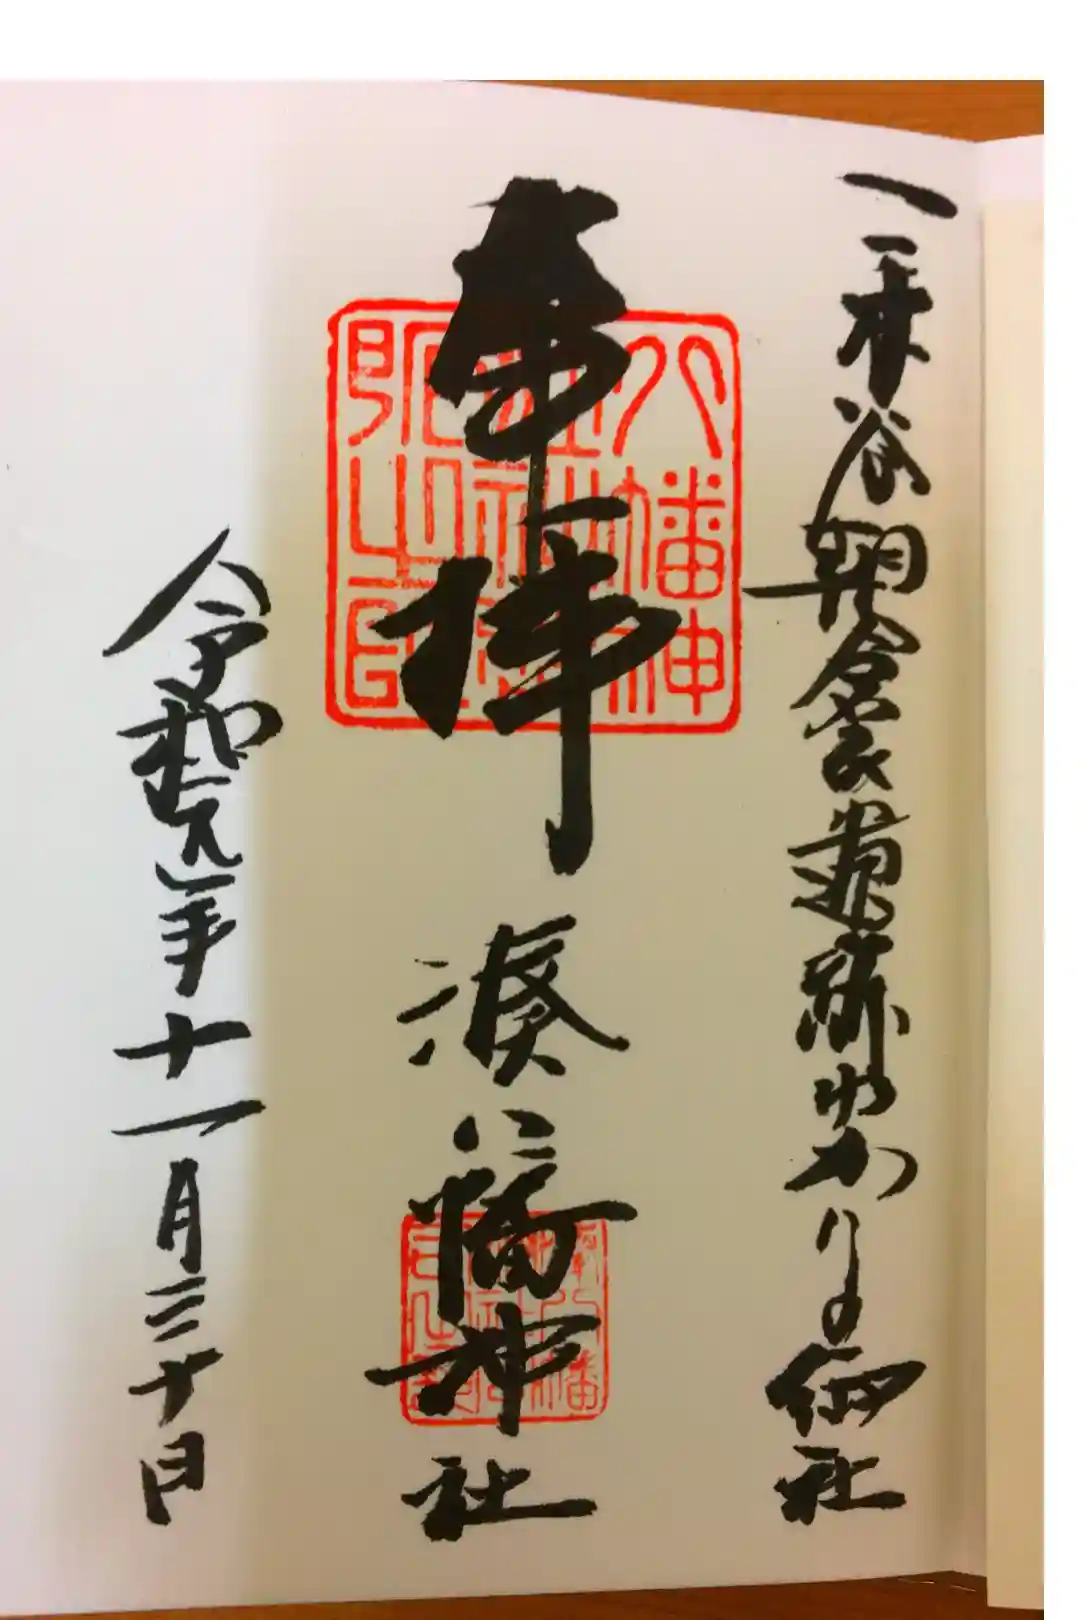 一乗谷朝倉家ゆかりの御社
奉拝 湊八幡神社
八幡神
令和元年十一月三十日